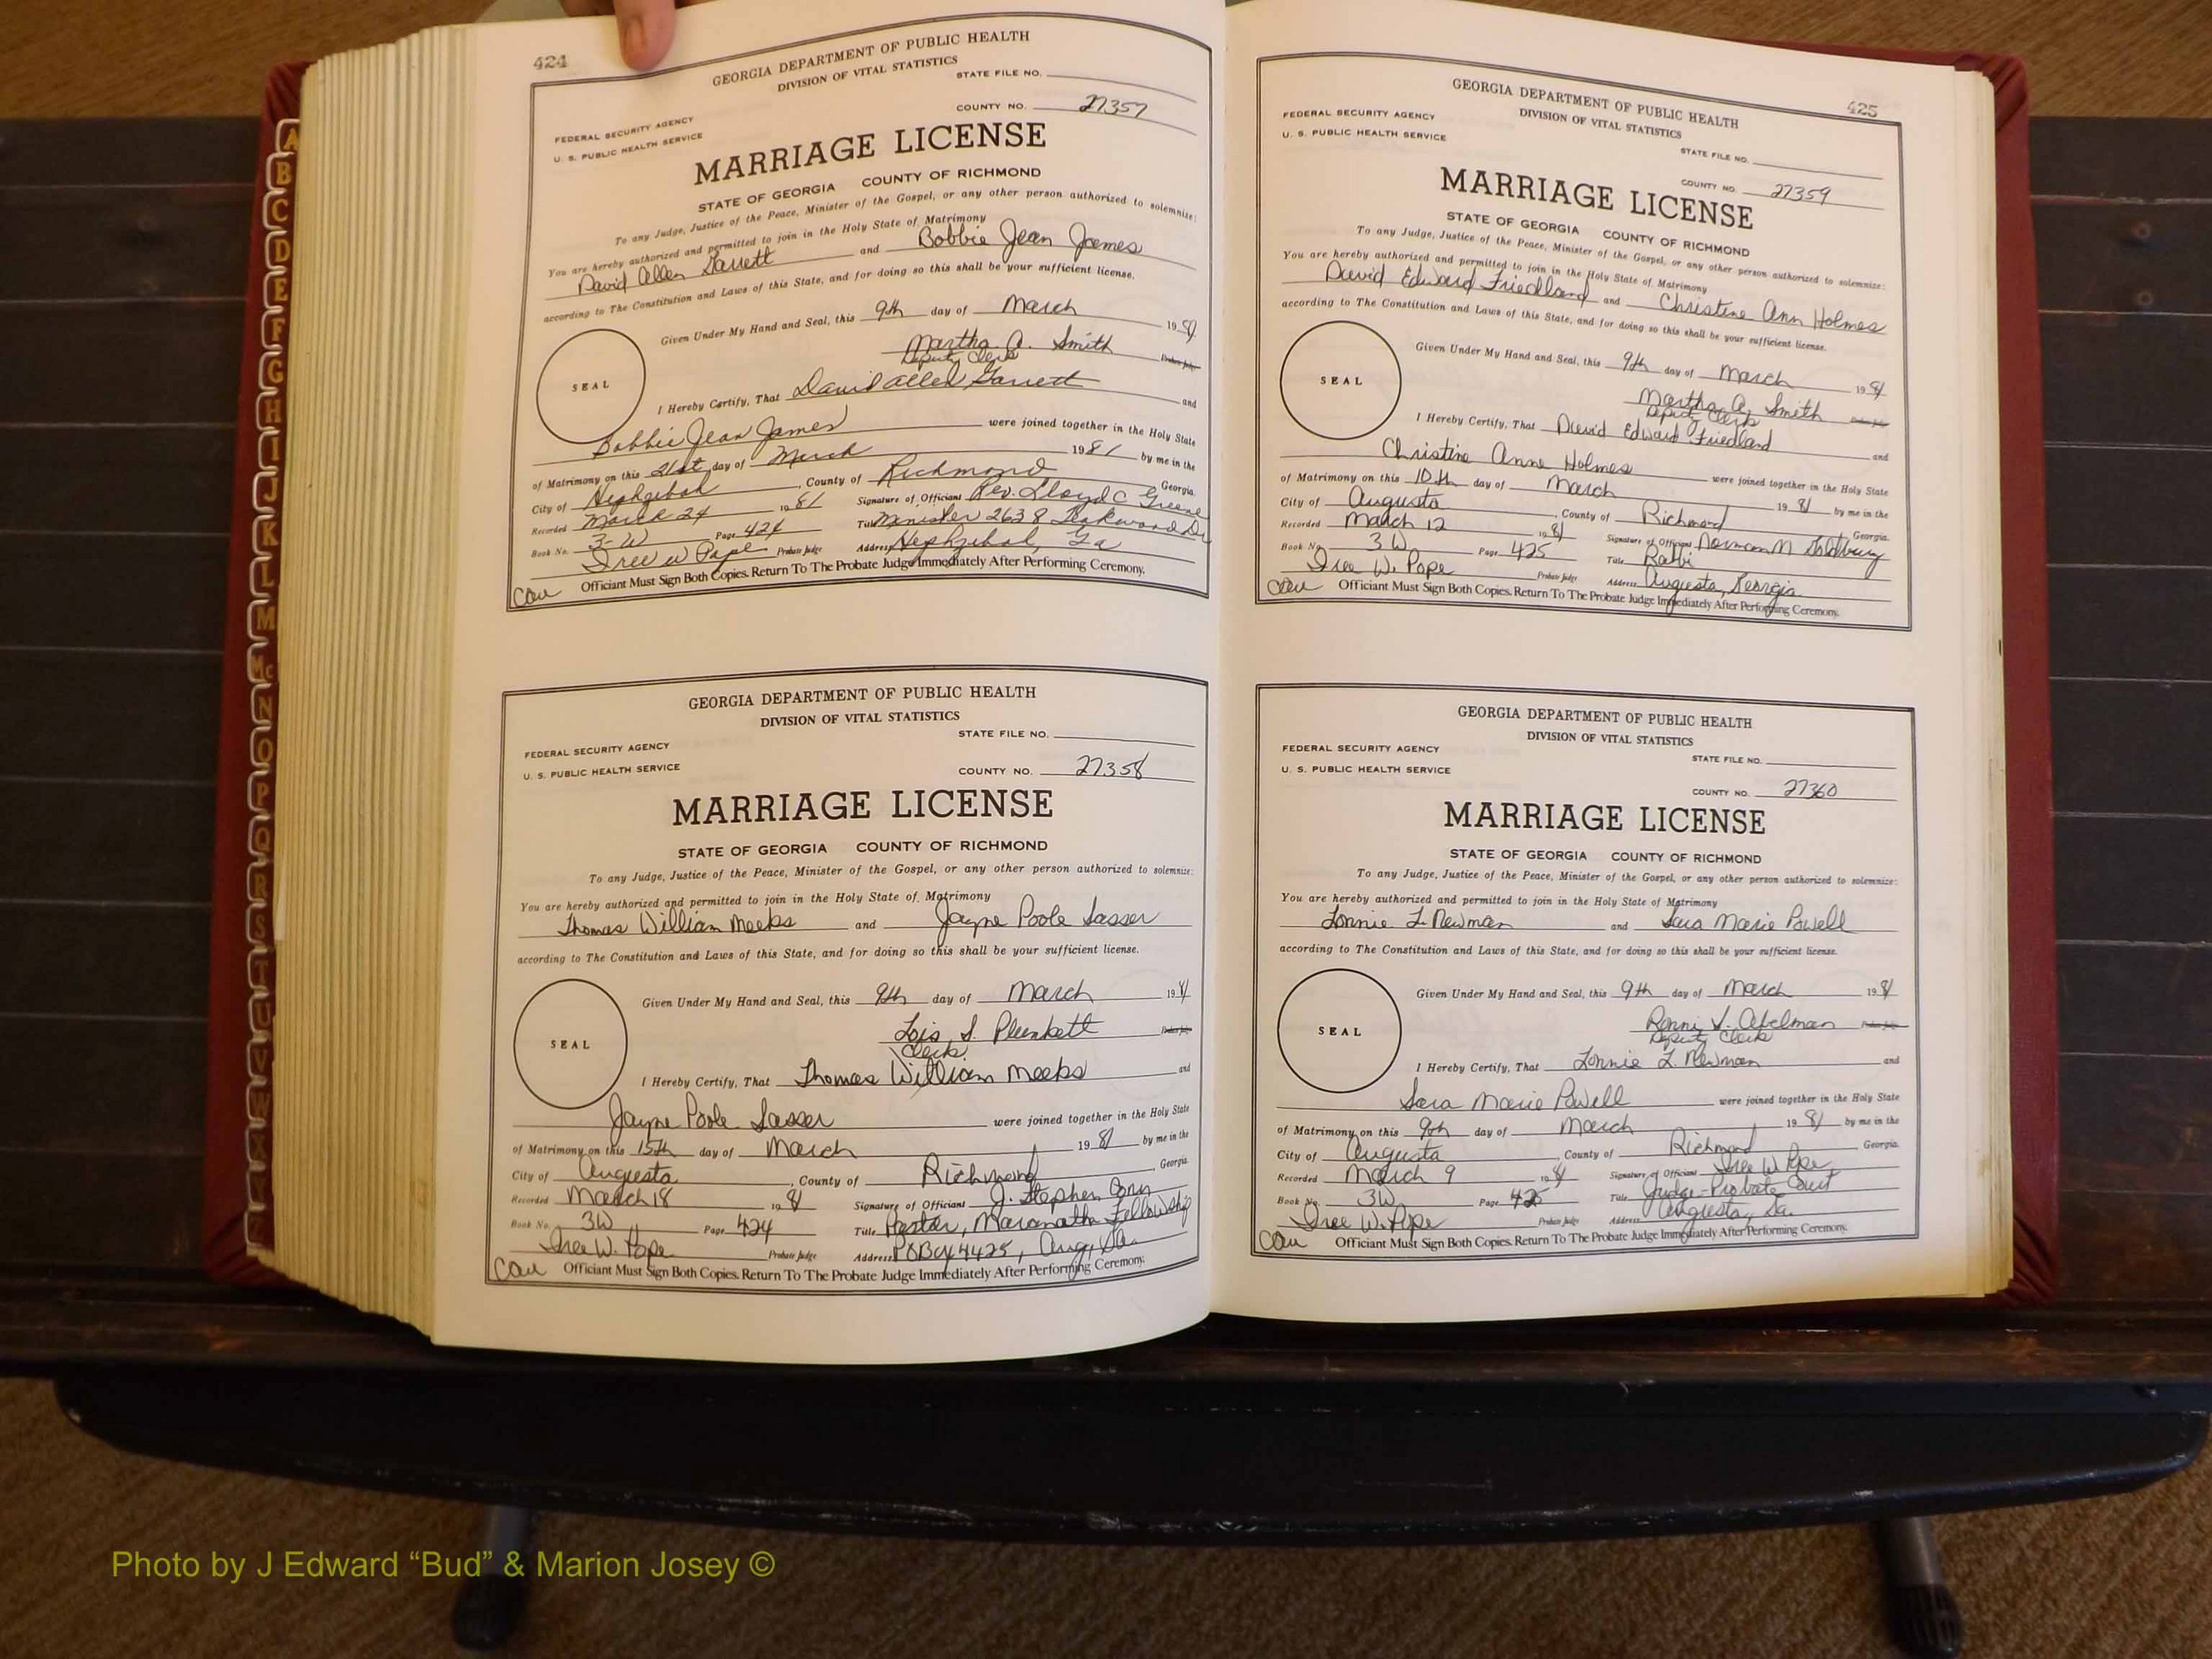 424
GEORGIA DEPARTMENT OF PUBLIC HEALTH
DIVISION OF VITAL STATISTICS
STATE FILE NO.
COUNTY NO. 27357
FEDERAL SECURITY AGENCY
U. S. PUBLIC HEALTH SERVICE
MARRIAGE LICENSE
STATE OF GEORGIA COUNTY OF RICHMOND
To any Judge, Justice of the Peace, Minister of the Gospel, or any other person authorized to solemnize:
You are hereby authorized and permitted to join in the Holy State of Matrimony
David Allen Garrett and Bobbie Jean James
according to The Constitution and Laws of this State, and for doing so this shall be your sufficient license.
Given Under My Hand and Seal, this 9th day of March 1981
Martha A. Smith Probate Judge
Deputy Clerk
SEAL
I Hereby Certify, That David Allen Garrett and
Bobbie Jean James were joined together in the Holy State
of Matrimony on this 21st day of March 1981 by me in the
City of Hephzibah, County of Richmond Georgia.
Recorded March 24 1981 Signature of Officiant Rev. Lloyd C Greene
Book No. 3-W Page 424 Title Minister 2638
Dr
Iree W Pope Probate Judge Address Hephzibah, Ga
Officiant Must Sign Both Copies. Return To The Probate Judge Immediately After Performing Ceremony.
GEORGIA DEPARTMENT OF PUBLIC HEALTH
DIVISION OF VITAL STATISTICS
STATE FILE NO.
FEDERAL SECURITY AGENCY
U. S. PUBLIC HEALTH SERVICE
COUNTY NO. 27358
MARRIAGE LICENSE
STATE OF GEORGIA COUNTY OF RICHMOND
To any Judge, Justice of the Peace, Minister of the Gospel, or any other person authorized to solemnize:
You are hereby authorized and permitted to join in the Holy State of Matrimony
Thomas William Meeks and Jayne Poole Sasser
according to The Constitution and Laws of this State, and for doing so this shall be your sufficient license.
Given Under My Hand and Seal, this 9th day of March 1981
Lois S. Plunkett Probate Judge
Clerk
SEAL
I Hereby Certify, That Thomas William Meeks and
Jayne Poole Sasser were joined together in the Holy State
of Matrimony on this 15th day of March 1981 by me in the
City of Augusta, County of Richmond Georgia.
Recorded March 18 1981 Signature of Officiant J. Stephen
Book No. 3W Page 424 Title Pastor, Maranatha Fellowship
Iree W. Pope Probate Judge Address P.O Box 4425, Aug, Ga.
Officiant Must Sign Both Copies. Return To The Probate Judge Immediately After Performing Ceremony.
425
GEORGIA DEPARTMENT OF PUBLIC HEALTH
DIVISION OF VITAL STATISTICS
FEDERAL SECURITY AGENCY
U. S. PUBLIC HEALTH SERVICE
STATE FILE NO.
COUNTY NO. 27359
MARRIAGE LICENSE
STATE OF GEORGIA COUNTY OF RICHMOND
To any Judge, Justice of the Peace, Minister of the Gospel, or any other person authorized to solemnize:
You are hereby authorized and permitted to join in the Holy State of Matrimony
David Edward Friedland and Christine Ann Holmes
according to The Constitution and Laws of this State, and for doing so this shall be your sufficient license.
Given Under My Hand and Seal, this 9th day of March 1981
Martha A. Smith Probate Judge
Deputy Clerk
SEAL
I Hereby Certify, That David Edward Friedland and
Christine Anne Holmes were joined together in the Holy State
of Matrimony on this 10th day of March 1981 by me in the
City of Augusta, County of Richmond Georgia.
Recorded March 12 1981 Signature of Officiant Norman M Goldburg
Book No. 3W Page 425 Title Rabbi
Iree W. Pope Probate Judge Address Augusta, Georgia
Officiant Must Sign Both Copies. Return To The Probate Judge Immediately After Performing Ceremony.
GEORGIA DEPARTMENT OF PUBLIC HEALTH
DIVISION OF VITAL STATISTICS
FEDERAL SECURITY AGENCY
U. S. PUBLIC HEALTH SERVICE
STATE FILE NO.
COUNTY NO. 27360
MARRIAGE LICENSE
STATE OF GEORGIA COUNTY OF RICHMOND
To any Judge, Justice of the Peace, Minister of the Gospel, or any other person authorized to solemnize:
You are hereby authorized and permitted to join in the Holy State of Matrimony
Lonnie L. Newman and Sara Marie Powell
according to The Constitution and Laws of this State, and for doing so this shall be your sufficient license.
Given Under My Hand and Seal, this 9th day of March 1981
Ronni S. Abelman Probate Judge
Deputy Clerk
SEAL
I Hereby Certify, That Lonnie L. Newman and
Sara Marie Powell were joined together in the Holy State
of Matrimony on this 9th day of March 1981 by me in the
City of Augusta, County of Richmond Georgia.
Recorded March 9 1981 Signature of Officiant Iree W. Pope
Book No. 3W Page 425 Title Judge-Probate Court
Iree W. Pope Probate Judge Address Augusta, Ga.
Officiant Must Sign Both Copies. Return To The Probate Judge Immediately After Performing Ceremony.
A
B
C
D
E
F
G
H
I
J
K
L
M
Mc
N
O
P
Q
R
S
T
U
V
W
X
Y
Photo by J Edward “Bud” & Marion Josey ©